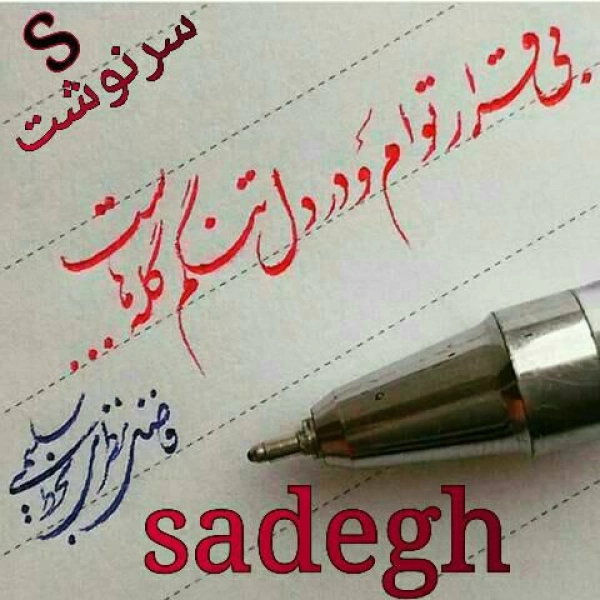 S
سرنوشت
بی قرار توام وَ در دل تنگم گله هاست ...
فاضل نظری
بخط سلیمی
sadegh